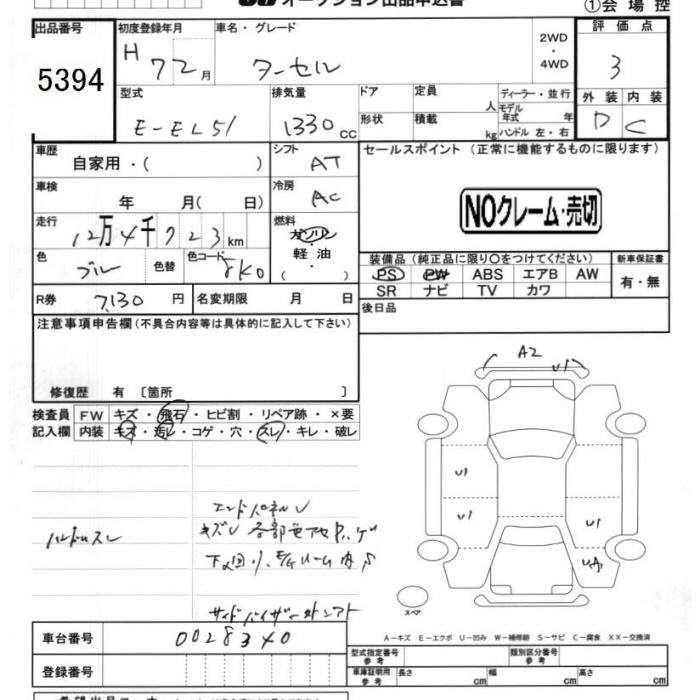 オークション出品申込書
①会場控
出品番号 初度登録年月 車名・グレード 評価点
5394 H 7 2月 ターセル 2WD・4WD 3
型式 排気量 ドア 定員 人 ディーラー・並行 外装 内装
E-EL51 1330 cc 形状 積載 kg モデル年式 年 ハンドル 左・右 D C
車歴 自家用・( ) シフト AT セールスポイント (正常に機能するものに限ります)
車検 年 月( 日) 冷房 AC NOクレーム・売切
走行 12万4千723km 燃料 ガソリン・軽油・( )
色 ブルー 色替 色コード 8K0
装備品 (純正品に限り○をつけてください) 新車保証書
PS PW ABS エアB AW 有・無
SR ナビ TV カワ
R券 7,130 円 名変期限 月 日 後日品
注意事項申告欄(不具合内容等は具体的に記入して下さい)
修復歴 有 〔箇所 〕
検査員 FW キズ・飛石・ヒビ割・リペア跡・×要
記入欄 内装 キズ・汚レ・コゲ・穴・スレ・キレ・破レ
A2
U1
U1
U1
U1
エンドパネルU
ハンドルスレ
キズU 各部
サイドバイザー
スペア
車台番号 0028340
A-キズ E-エクボ U-凹み W-補修跡 S-サビ C-腐食 XX-交換済
登録番号
型式指定番号 参考 類別区分番号 参考
車庫証明用 参考 長さ cm 幅 cm 高さ cm